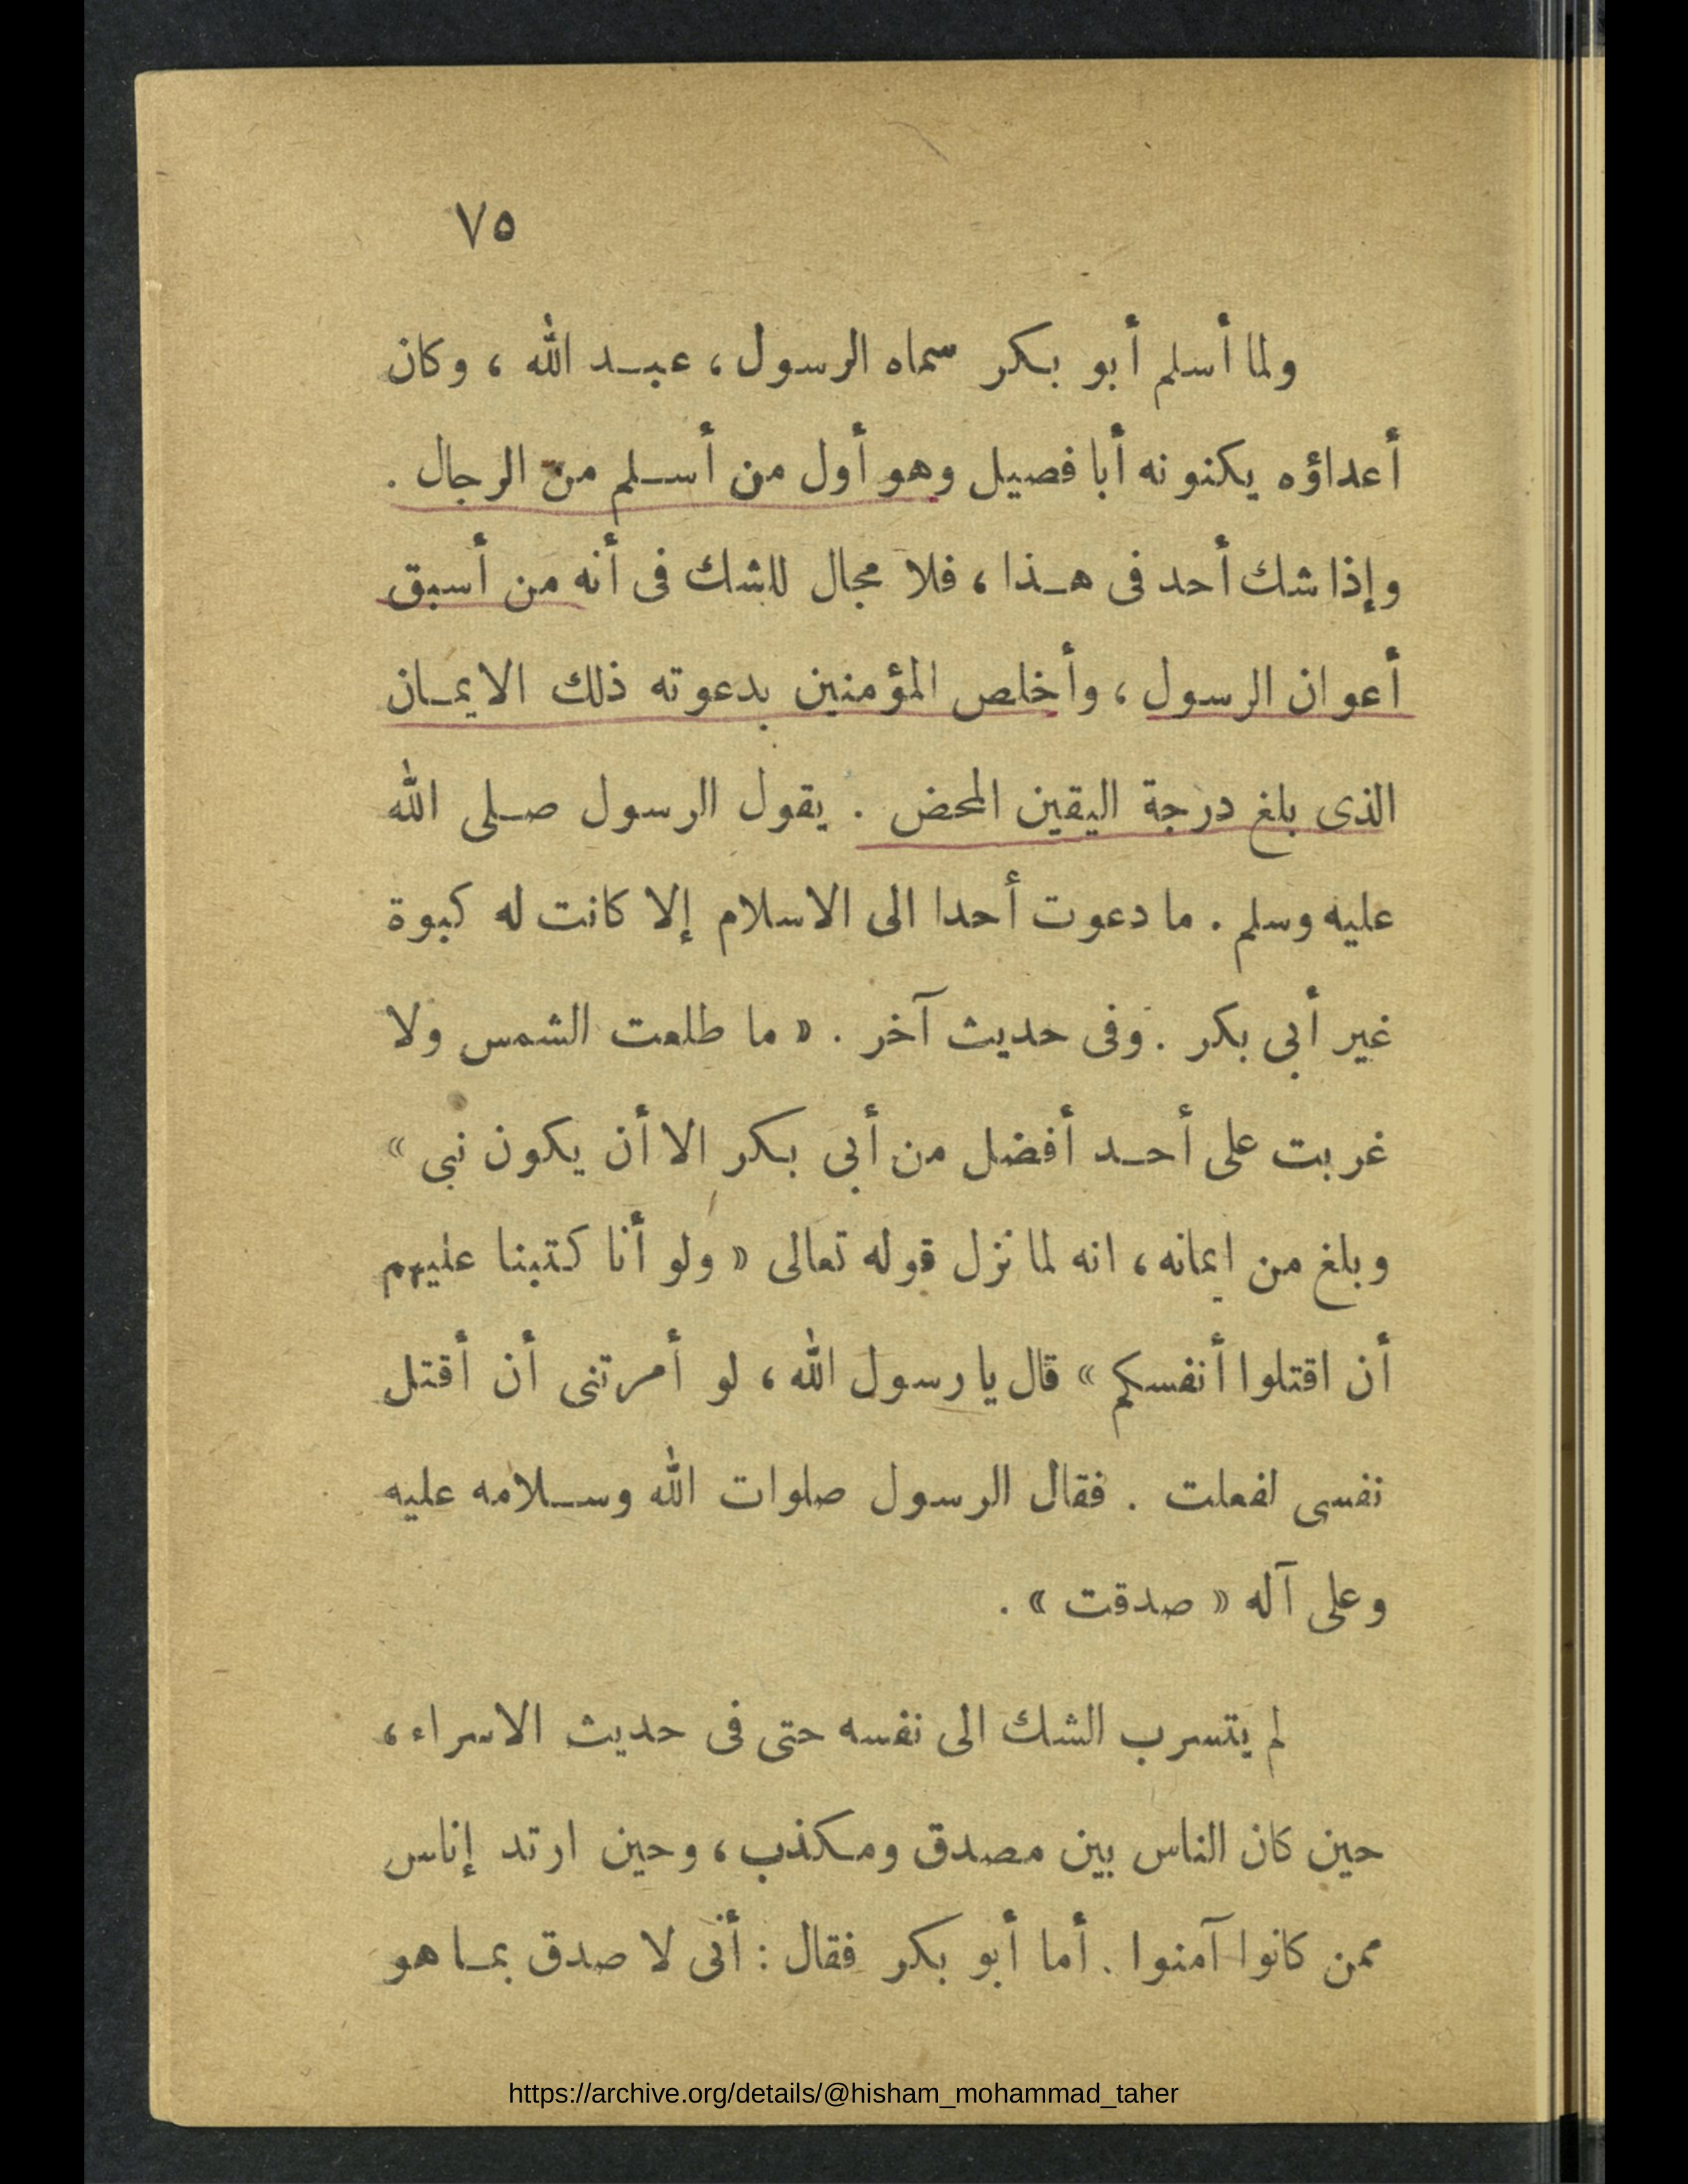 ٧٥
ولما أسلم أبو بكر سماه الرسول، عبد الله ، وكان
أعداؤه يكنونه أبا فصيل وهو أول من أسلم من الرجال .
وإذا شك أحد فى هذا ، فلا مجال للشك فى أنه من أسبق
أعوان الرسول ، وأخلص المؤمنين بدعوته ذلك الايمان
الذى بلغ درجة اليقين المحض . يقول الرسول صلى الله
عليه وسلم . ما دعوت أحدا الى الاسلام إلا كانت له كبوة
غير أبي بكر . وفى حديث آخر . « ما طلعت الشمس ولا
غربت على أحد أفضل من أبي بكر الا أن يكون نبى »
وبلغ من ايمانه ، انه لما نزل قوله تعالى « ولو أنا كتبنا عليهم
أن اقتلوا أنفسكم » قال يا رسول الله ، لو أمرتنى أن أقتل
نفسى لفعلت . فقال الرسول صلوات الله وسلامه عليه
وعلى آله « صدقت » .
لم يتسرب الشك الى نفسه حتى فى حديث الاسراء ،
حين كان الناس بين مصدق ومكذب ، وحين ارتد إناس
ممن كانوا آمنوا . أما أبو بكر فقال : أنى لا صدق بما هو
https://archive.org/details/@hisham_mohammad_taher